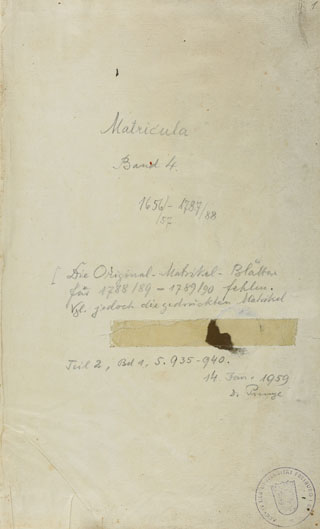 1
Matricula
Band 4.
1656/57 - 1787/88
[ Die Original-Matrikel-Blätter
für 1788/89 - 1789/90 fehlen.
Vgl. jedoch die gedruckten Matrikel
Teil 2, Bd 1, S. 935-940.
14 Jan. 1959